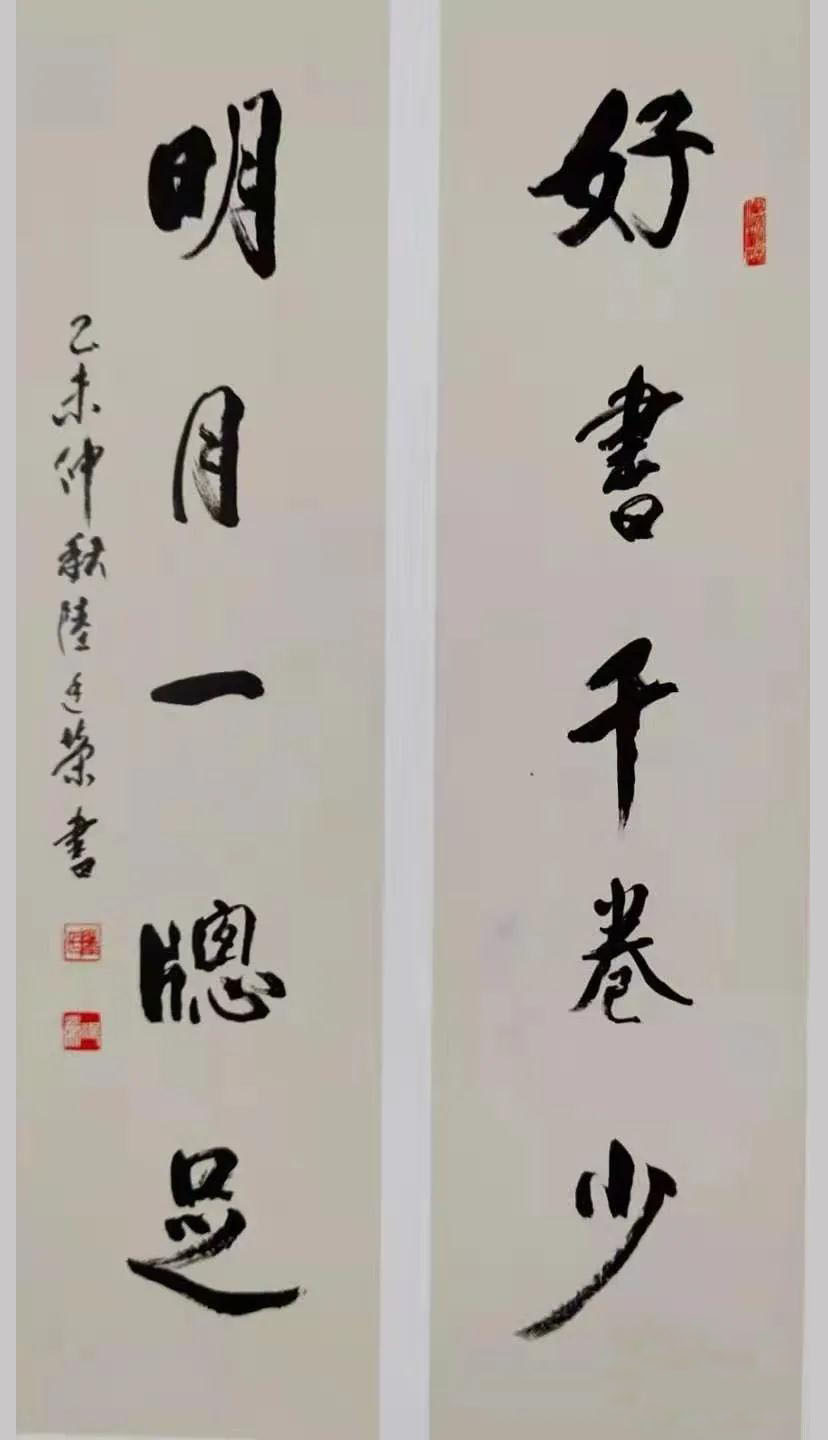 好書千卷少
明月一牕足
乙未仲秋陸廷榮書